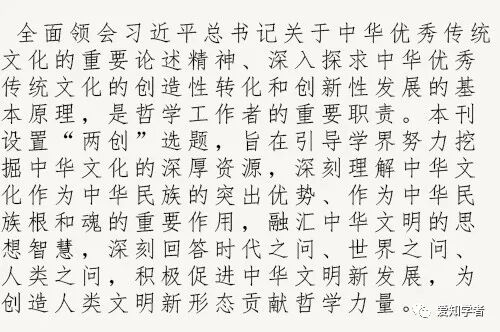 全面领会习近平总书记关于中华优秀传统
文化的重要论述精神、深入探求中华优秀
传统文化的创造性转化和创新性发展的基
本原理，是哲学工作者的重要职责。本刊
设置“两创”选题，旨在引导学界努力挖
掘中华文化的深厚资源，深刻理解中华文
化作为中华民族的突出优势、作为中华民
族根和魂的重要作用，融汇中华文明的思
想智慧，深刻回答时代之问、世界之问、
人类之问，积极促进中华文明新发展，为
创造人类文明新形态贡献哲学力量。
爱知学者